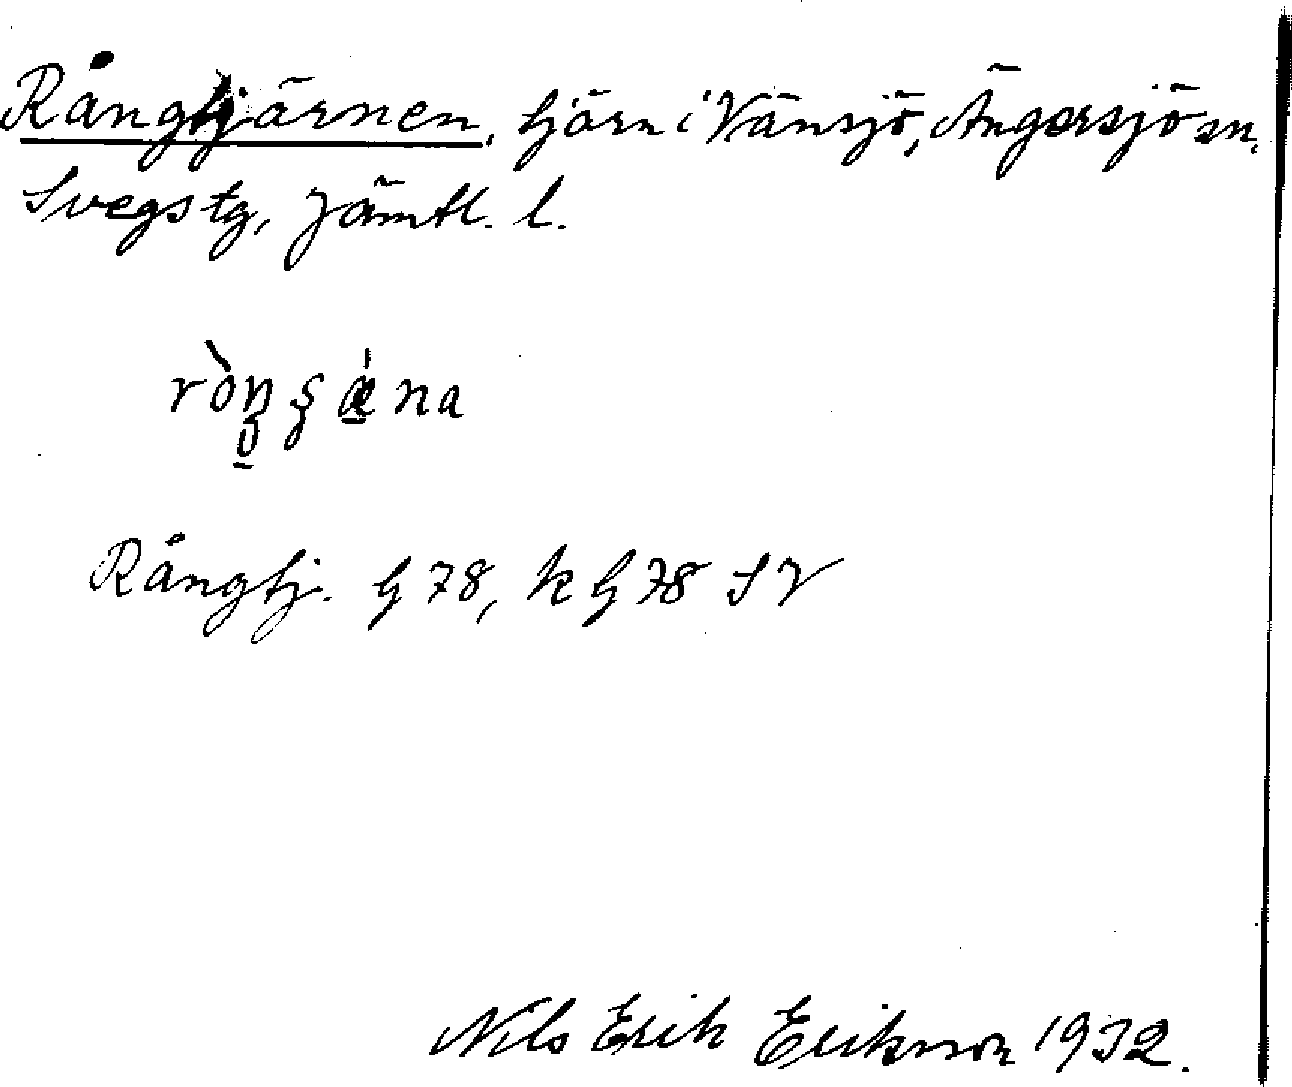 Rångtjärnen, tjärn i Vänsjö, Ängersjö sn.
Svegs tg, Jämtl. l.
Rångtj. G 78, k G 78 SV
Nils Erik Erikson 1932.